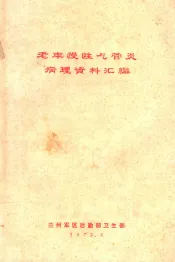 老年慢性气管炎
病理资料汇编
兰州军区后勤部卫生部